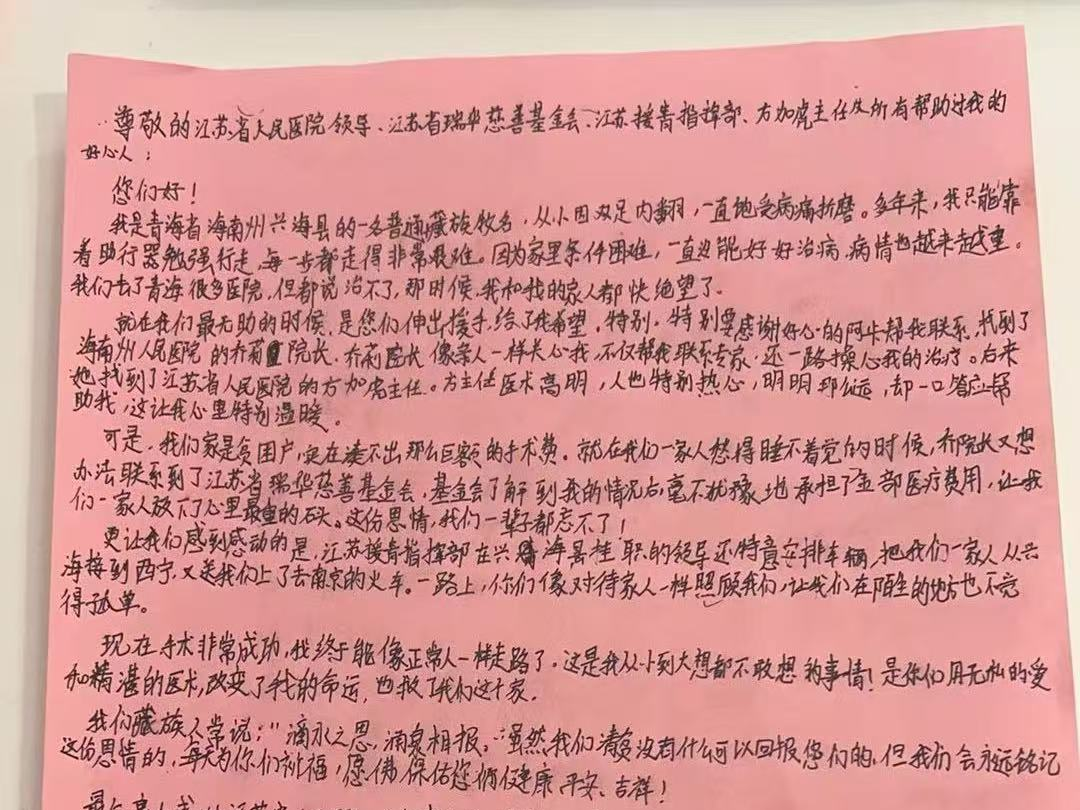 尊敬的江苏省人民医院领导、江苏省瑞华慈善基金会、江苏援青指挥部、方加虎主任及所有帮助过我的
好心人:
您们好!
我是青海省海南州兴海县的一名普通藏族牧名,从小因双足内翻,一直饱受病痛折磨。多年来,我只能靠
着助行器勉强行走,每一步都走得非常艰难。因为家里条件困难,一直没能好好治病,病情也越来越重。
我们去了青海很多医院,但都说治不了,那时候,我和我的家人都快绝望了。
就在我们最无助的时候,是您们伸出援手,给了我希望,特别,特别要感谢好心的阿卡帮我联系,找到了
海南州人民医院的乔莉院长。乔莉院长像亲人一样关心我,不仅帮我联系专家,还一路操心我的治疗。后来
她找到了江苏省人民医院的方加虎主任。方主任医术高明,人也特别热心,明明那么远,却一口答应帮
助我,这让我心里特别温暖。
可是,我们家是贫困户,实在凑不出那么巨额的手术费。就在我们一家人愁得睡不着觉的时候,乔院长又想
办法联系到了江苏省瑞华慈善基金会,基金会了解到我的情况后,毫不犹豫地承担了全部医疗费用,让我
们一家人放下了心里最重的石头。这份恩情,我们一辈子都忘不了!
更让我们感到感动的是,江苏援青指挥部在兴海县挂职的领导还特意安排车辆,把我们一家人从兴
海接到西宁,又送我们上了去南京的火车。一路上,你们像对待家人一样照顾我们,让我们在陌生的地方也不觉
得孤单。
现在手术非常成功,我终于能像正常人一样走路了,这是我从小到大想都不敢想的事情!是你们用无私的爱
和精湛的医术,改变了我的命运,也救了我们这个家。
我们藏族人常说:"滴水之恩,涌泉相报。"虽然我们清贫没有什么可以回报您们的,但我们会永远铭记
这份恩情的,每天为你们祈福,愿佛保佑您们健康、平安、吉祥!